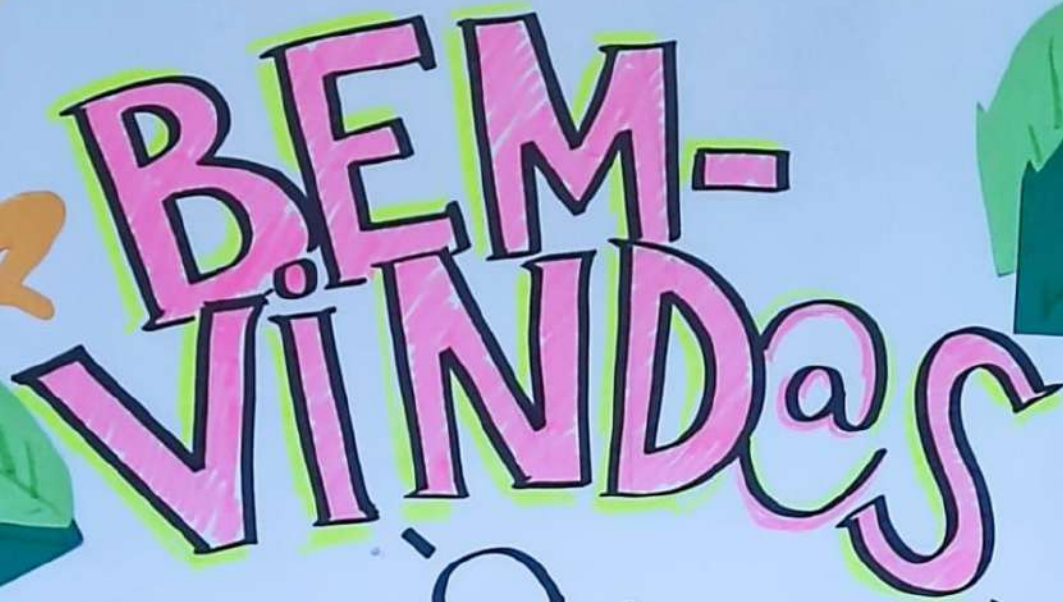 BEM-
ViND@S